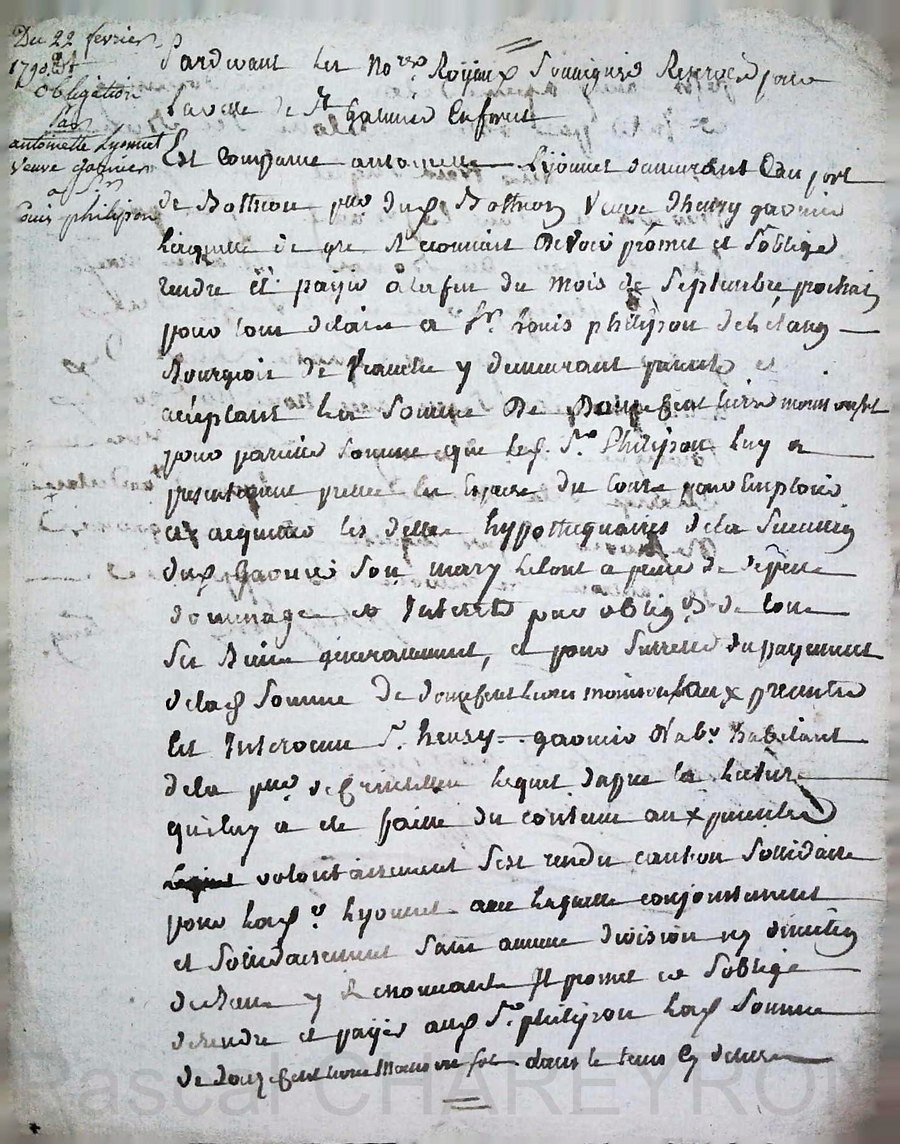 Du 22 fevrier
1790
Obligation
Par
antoinette Lyonnet
veuve gaonier
a Sr
Louis philipon
Pardevant les Nores Royaux Soussignés Reservés pour
La ville de St Galmier
Est Comparue antoinette Lyonnet demeurant au port
de Botheon psse dud Botheon Veuve d'henry gaonier
Laquelle de gre Reconnait Devoir promet et Soblige
rendre et payer a la fin du mois de Septembre prochain
pour tout delaix a Sr Louis philipon
Bourgois de y demeurant present et
acceptant La Somme De Douze Cent Livres moins un sol
pour pareille Somme que led Sr Philipon Luy a
presentement pretée en Espece du Cours pour Emploier
a acquitter les dettes hypothequaires de la Succession
dud Gaonier Son mary Le tout a peine de
dommage et Interets par obligon de tous
Ses Biens generalement, et pour Surette du payement
de lad Somme de douze Cent Livres moins un sol aux presentes
Est Intervenu Sr henry gaonier habitant
de la psse de lequel dapres la Lecture
qui luy a ete faitte du contenu aux presentes
volontairement Sest rendu caution Sollidaire
pour lad ve Lyonnet avec laquelle conjointement
et Solidairement Sans aucune division ny discution
de Biens y Renonceant Il promet et Soblige
de rendre et payer aud Sr philipon lad Somme
de douze Cent livres Moins un sol dans le tems cy dessus
Pascal CHAREYRON